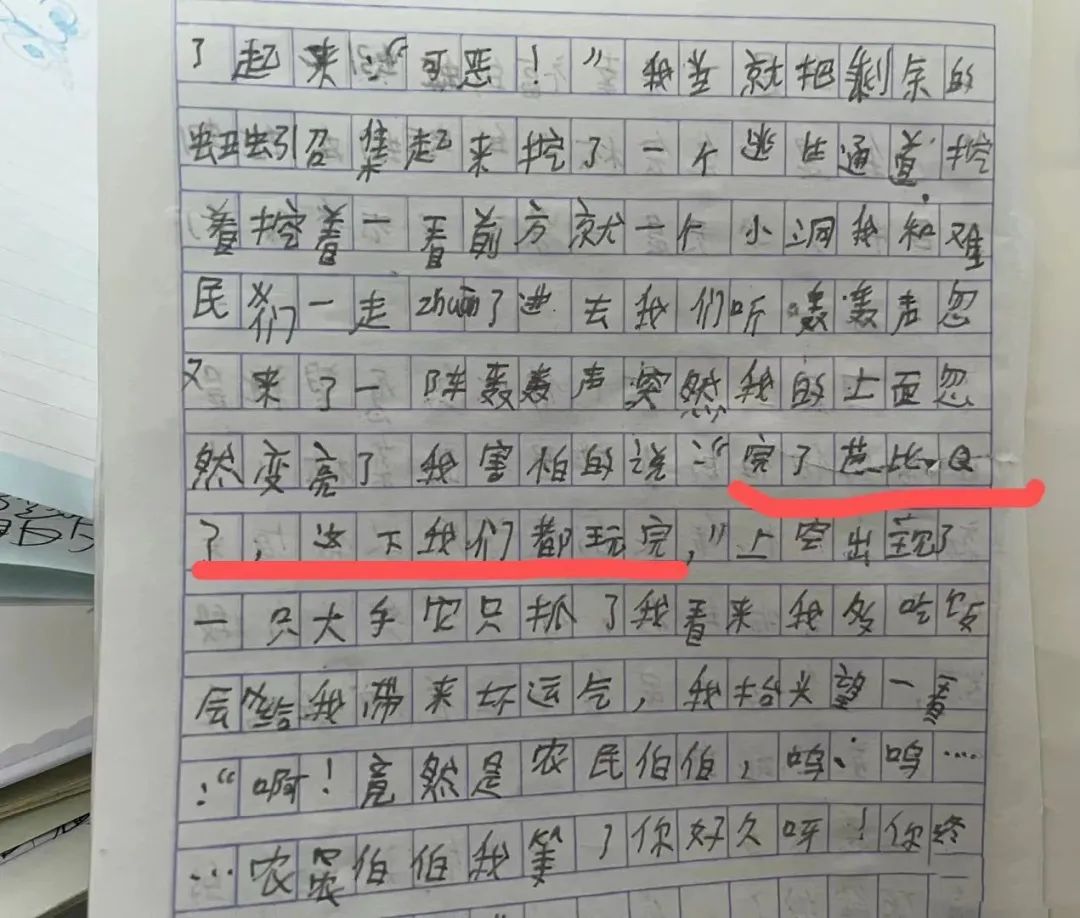 了起来:“可恶！”我当就把剩余的
蚯蚓召集起来挖了一个逃生通道.挖
着挖着一看前方就一个小洞我和难
民们一走zhuan了进去我们听轰轰声忽
又来了一阵轰轰声突然我的上面忽
然变亮了我害怕的说:“完了芭比Q
了，这下我们都玩完，”上空出现了
一只大手它只抓了我看来我多吃饭
会给我带来坏运气，我抬头望一看
:“啊！竟然是农民伯伯，呜、呜…
…农民伯伯我等了你好久呀！你终